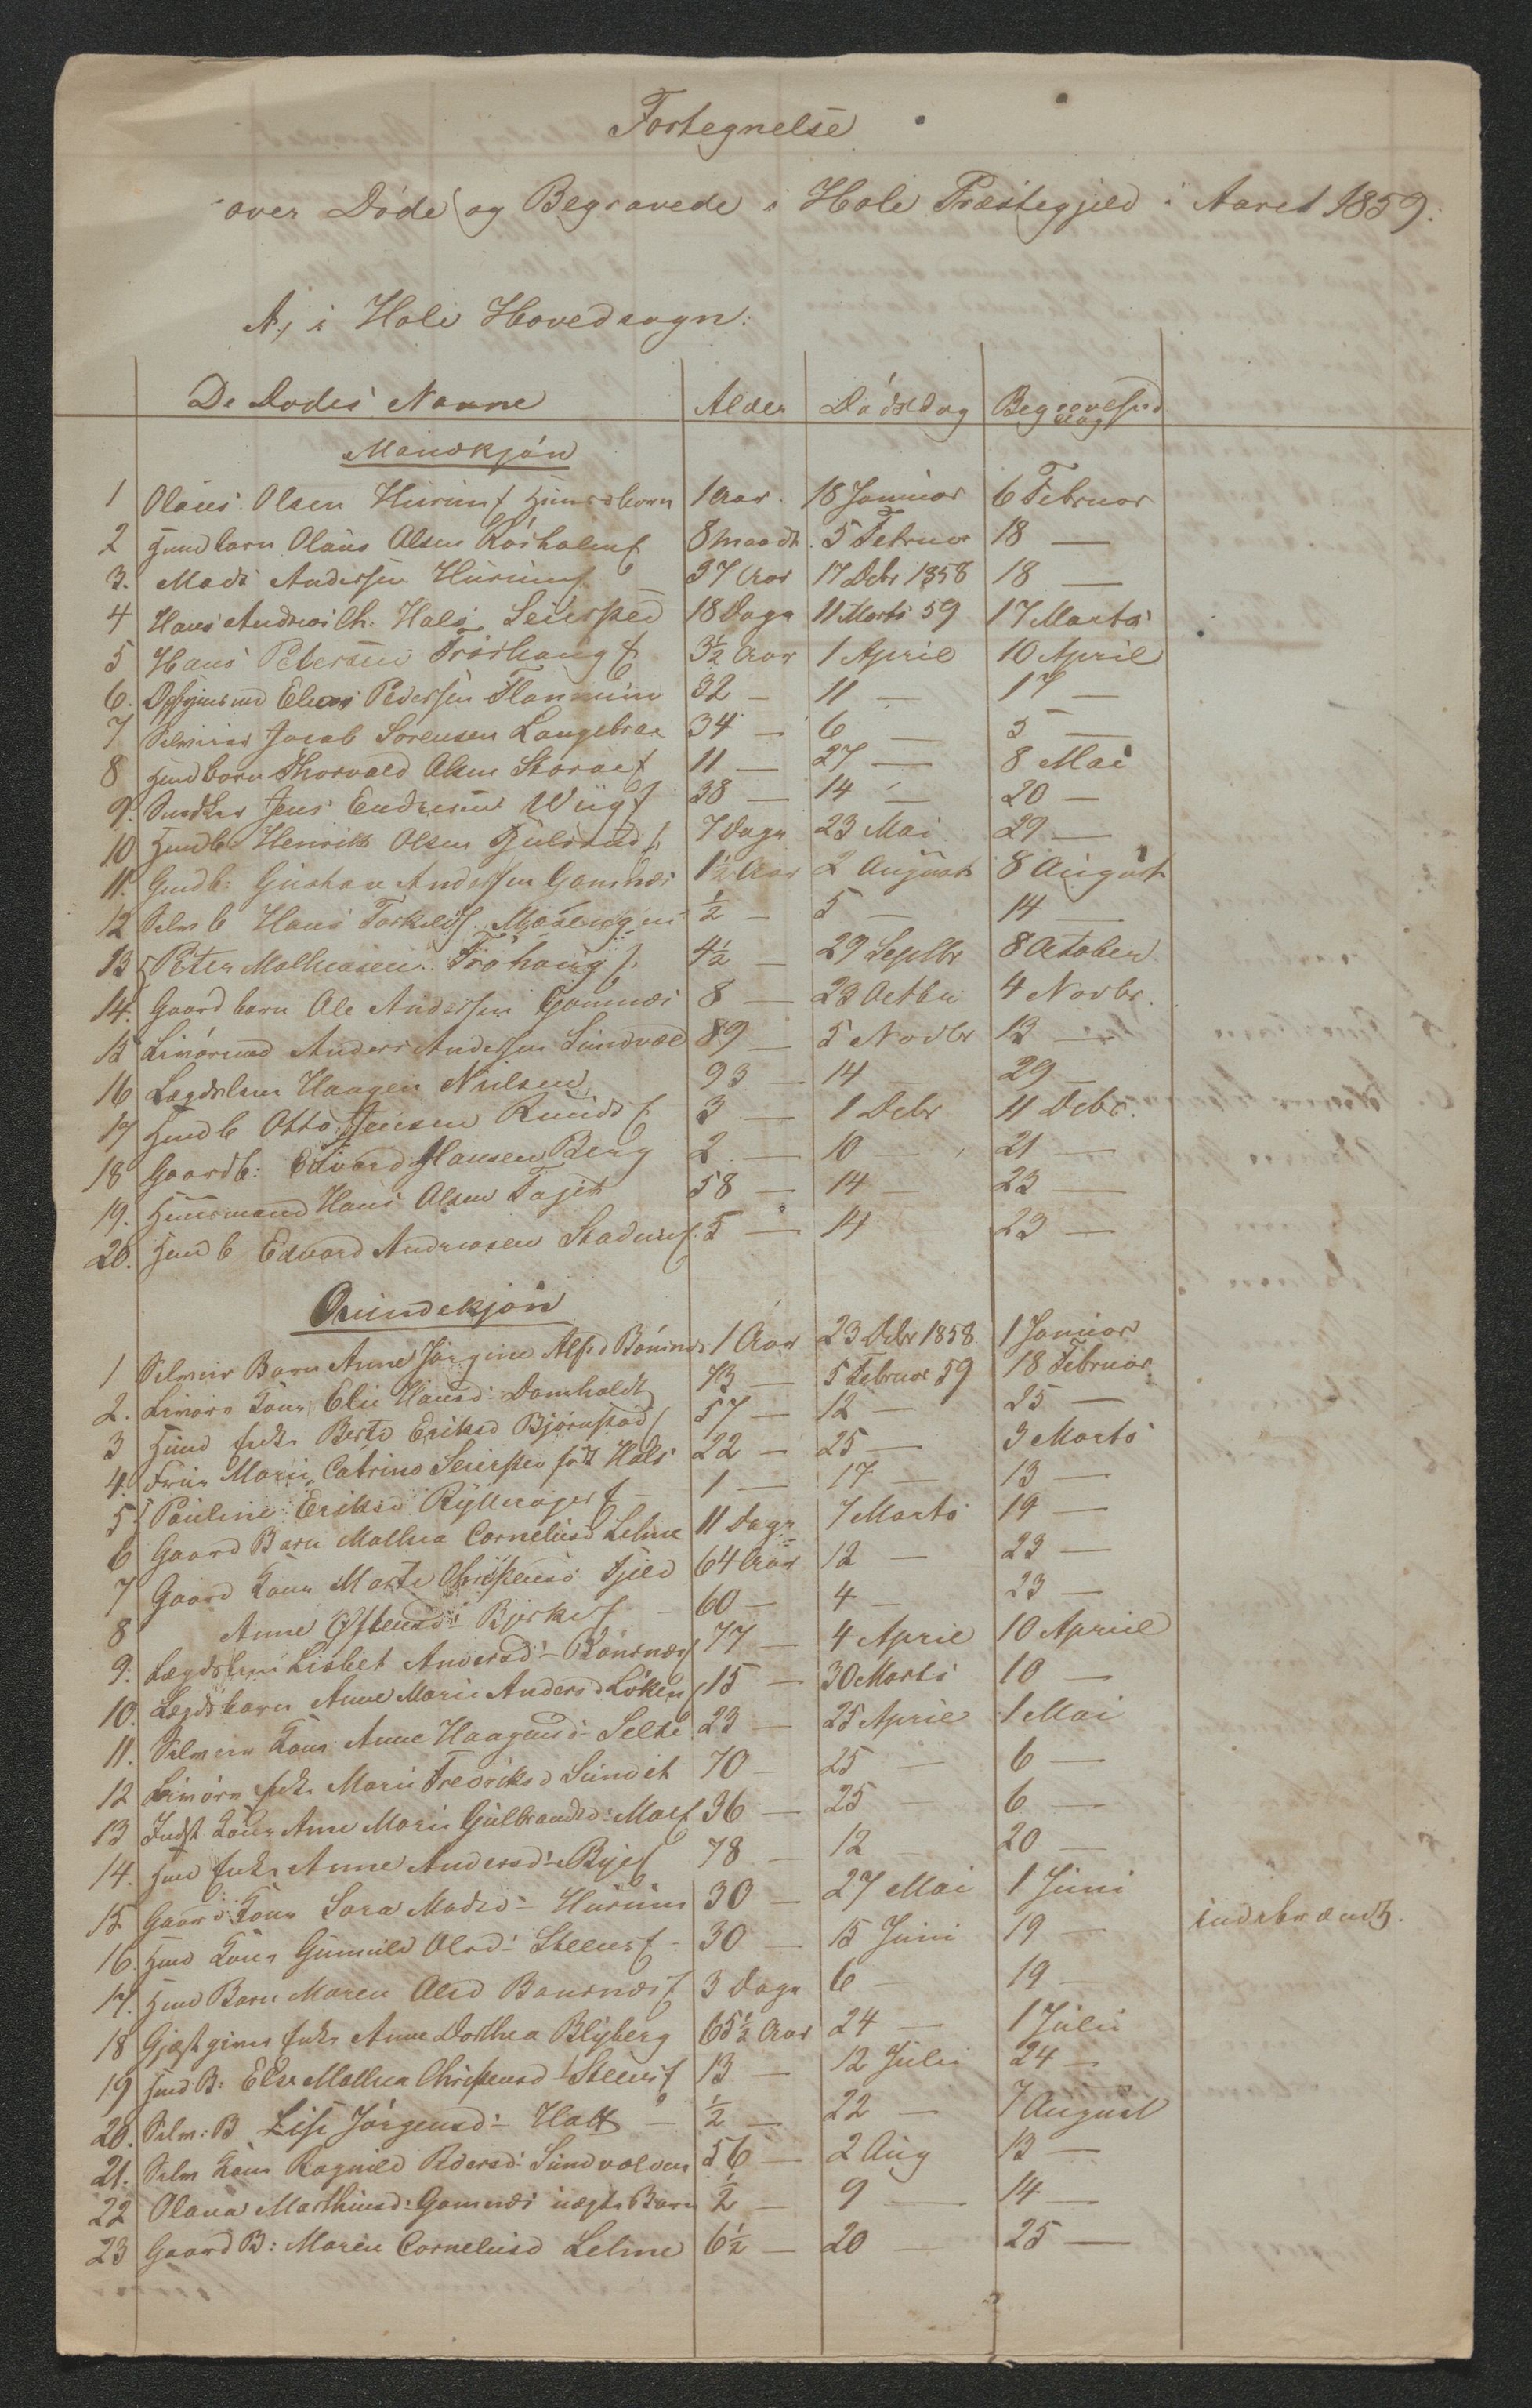 Fortegnelse
over Døde og Begravede i Hole Præstegjeld i Aaret 1859.
A, i Hole Hovedsogn:
De Dødes Navne Alder Dødsdag Begravelsesdag
Mandkjøn
1 Olaus Olsen Hurum Huusdbarn 1 Aar. 18 Januar 6 Februar
2 Husmdbarn Olaus Olsen 8 Maadr. 5 Februar 18 —
3. Mads Andersen Hurum 37 Aar 17 Debr 1858 18 —
4 Hans Andreas Ch. Hals Seiersted 18 Dage 11 Marts 59 17 Marts
5 Hans Petersen Frøhaug 3½ Aar 1 April 10 April
6. Elias Pedersen 32 — 11 — 17 —
7 Selveier Jacob Sørensen Langebrae 34 — 6 — 5 —
8 Husmdbarn Thorvald Olsen 11 — 27 — 8 Mai
9. Jens Endresen Wiig 38 — 14 — 20 —
10 Husmdb. Henrik Olsen 7 Dage 23 Mai 29 —
11. Grdb: Gustav Andersen Gomnæs 1½ Aar 2 August 8 August
12 Selvb Hans ½ — 5 — 14 —
13 Peter Mathiasen Frøhaug 4½ — 29 Septbr 8 October
14. Gaardbarn Ole Andersen Gomnæs 8 — 23 Octbr 4 Novbr.
15 Anders Andersen Sundvold 89 — 5 Novbr 12 —
16 Lægdslem Haagen Nielsen 93 — 14 29 —
17 Husmdb Otto Jensen 3 — 1 Debr 11 Debr.
18 Gaardb: Edvard Hansen Berg 2 — 10 — 21 —
19. Huusmand Hans Olsen 58 — 14 — 23 —
20. Husmdb Edvard Andreasen 5 — 14 23 —
Qvindekjøn
1 Selveier Barn Anne Jørgine Bønsnes 1 Aar 23 Debr 1858 1 Januar
2. Kone Elie Hansd. Domholdt 73 — 5 Februar 59 18 Februar
3 Husmd Enke Berte Eriksd Bjørnstad 57 — 12 — 25 —
4. Frue Marie Catrine Seiersted født Hals 22 — 25 — 3 Marts
5 Pauline Eriksd Rytterager 1 — 17 — 13 —
6 Gaard Barn Mathea Corneliusd Lehne 11 Dage 7 Marts 19 —
7 Gaard Kone Marte Christensd Fjeld 64 Aar 12 — 23 —
8 Anne 60 — 4 — 23 —
9. Lægdslem Lisbet Andersd Bønsnæs 77 — 4 April 10 April
10. Lægdsbarn Anne Marie Andersd Løken 15 — 30 Marts 10 —
11. Selveier Kone Anne Haagensd Selte 23 — 25 April 1 Mai
12 Enke Marie Fredriksd Sundet 70 — 25 — 6 —
13 Inderst Kone Anne Marie Gulbrandsd Moe 36 — 25 — 6 —
14. Husmd Enke Anne Andersd Rye 78 — 12 20 —
15 Gaard Kone Sara Madsd Hurum 30 — 27 Mai 1 Juni
16. Husmd Kone Gunnild Olsd Steens 30 — 15 Juni 19 — indebrændt.
17. Husmd Barn Maren Olsd Bønsnæs 3 Dage 6 — 19 —
18 Gjæstgiver Enke Anne Dorthea Blyberg 65½ Aar 24 — 1 Juli
19 Husmd B: Else Mathea Christensd Steens 13 — 12 Juli 24 —
20. Selv: B Lise Jørgensd ½ — 22 — 7 August
21. Selv Kone Ragnild Pedersd Sundvolden 56 — 2 Aug 13 —
22 Olava Marthinsd Gomnæs uægte Barn ½ — 9 — 14 —
23 Gaard B: Maren Corneliusd Lehne 6½ — 20 — 25 —